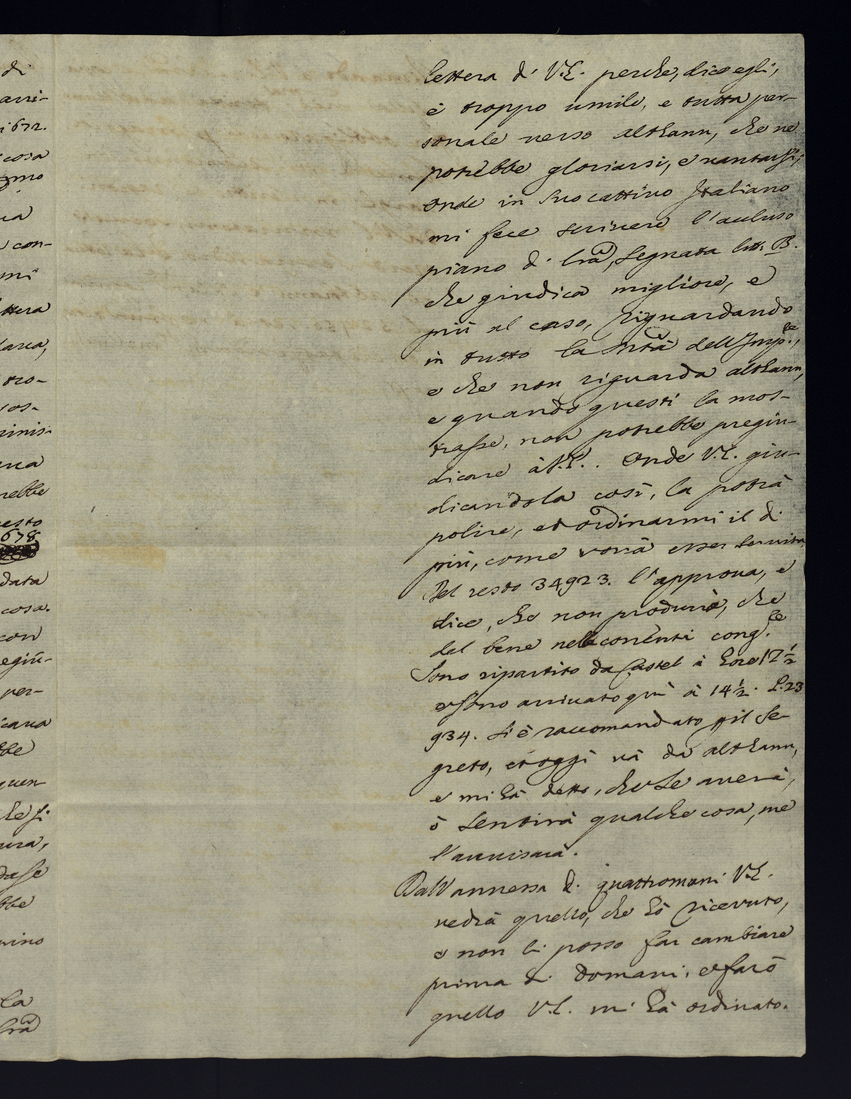 di
arri-
i 672.
cosa
ca
con-
mi
ttera
tro-
vos-
minis-
ebbe
esto
678
data
cosa.
con
egiu-
per-
cava
bbe
quen-
che si
ura,
dasse
bbe
vino
la
lrã
lettera di V.E. perche, dice egli,
è troppo umile, e tutta per-
sonale verso althann, che ne
potrebbe gloriarsi, e vantarsi,
onde in suo cattivo Italiano
mi fece scrivere l'acluso
piano di lrã, segnata litt: B.
che giudica migliore, e
più al caso, riguardando
in tutto la Mtà dell'Imp.ce,
e che non riguarda althann,
e quando questi la mos-
trasse, non potrebbe pregiu-
dicare à V.E. Onde V.E. giu-
dicandola così, la potrà
polire, et ordinarmi il di
più, come vorrà esser servita
Del resto 34923. l'approva, e
dice, che non produrrà, che
del bene nelle correnti cong.e
Sono ripartito da Castel à Ore 12 ½
e sono arrivato quì à 14 ½. L.23
934. si è raccomandato p il Se-
greto, et oggi và da althann,
e mi hà detto, che se averà,
ò sentirà qualche cosa, me
l'avviserà.
Dall'annessa di quattromani V.E.
vedrà quello, che hò ricevuto,
e non li posso far cambiare
prima di domani, e farò
quello V.E. mi hà ordinato.